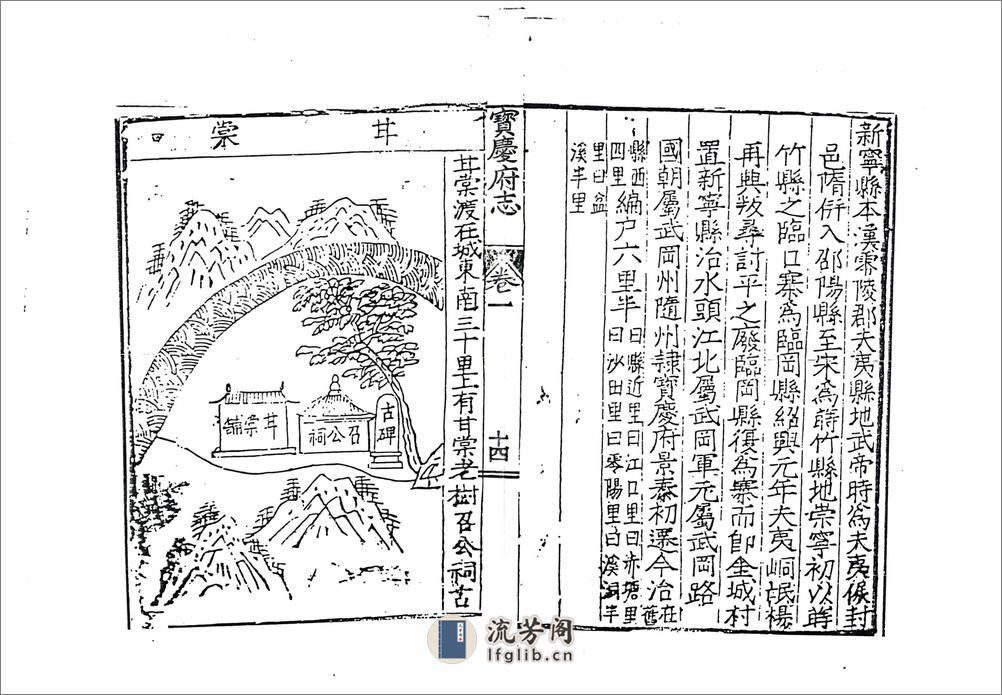 新寧縣本漢零陵郡夫夷縣地武帝時爲夫夷侯封
邑隋併入邵陽縣至宋爲蒔竹縣地崇寧初以蒔
竹縣之臨口寨爲臨岡縣紹興元年夫夷峒民楊
再興叛尋討平之廢臨岡縣復爲寨而卽金城村
置新寧縣治水頭江北屬武岡軍元屬武岡路
國朝屬武岡州隨州隷寶慶府景泰初遷今治舊在
縣西四里編户六里半曰縣近里曰江口里曰赤塘里曰沙田里曰零陽里白溪洞半
里曰盆溪半里
寶慶府志
卷一
十四
甘棠渡在城東南三十里上有甘棠老樹召公祠古
甘棠
古碑
召公祠
甘棠鋪
流芳阁
lfglib.cn